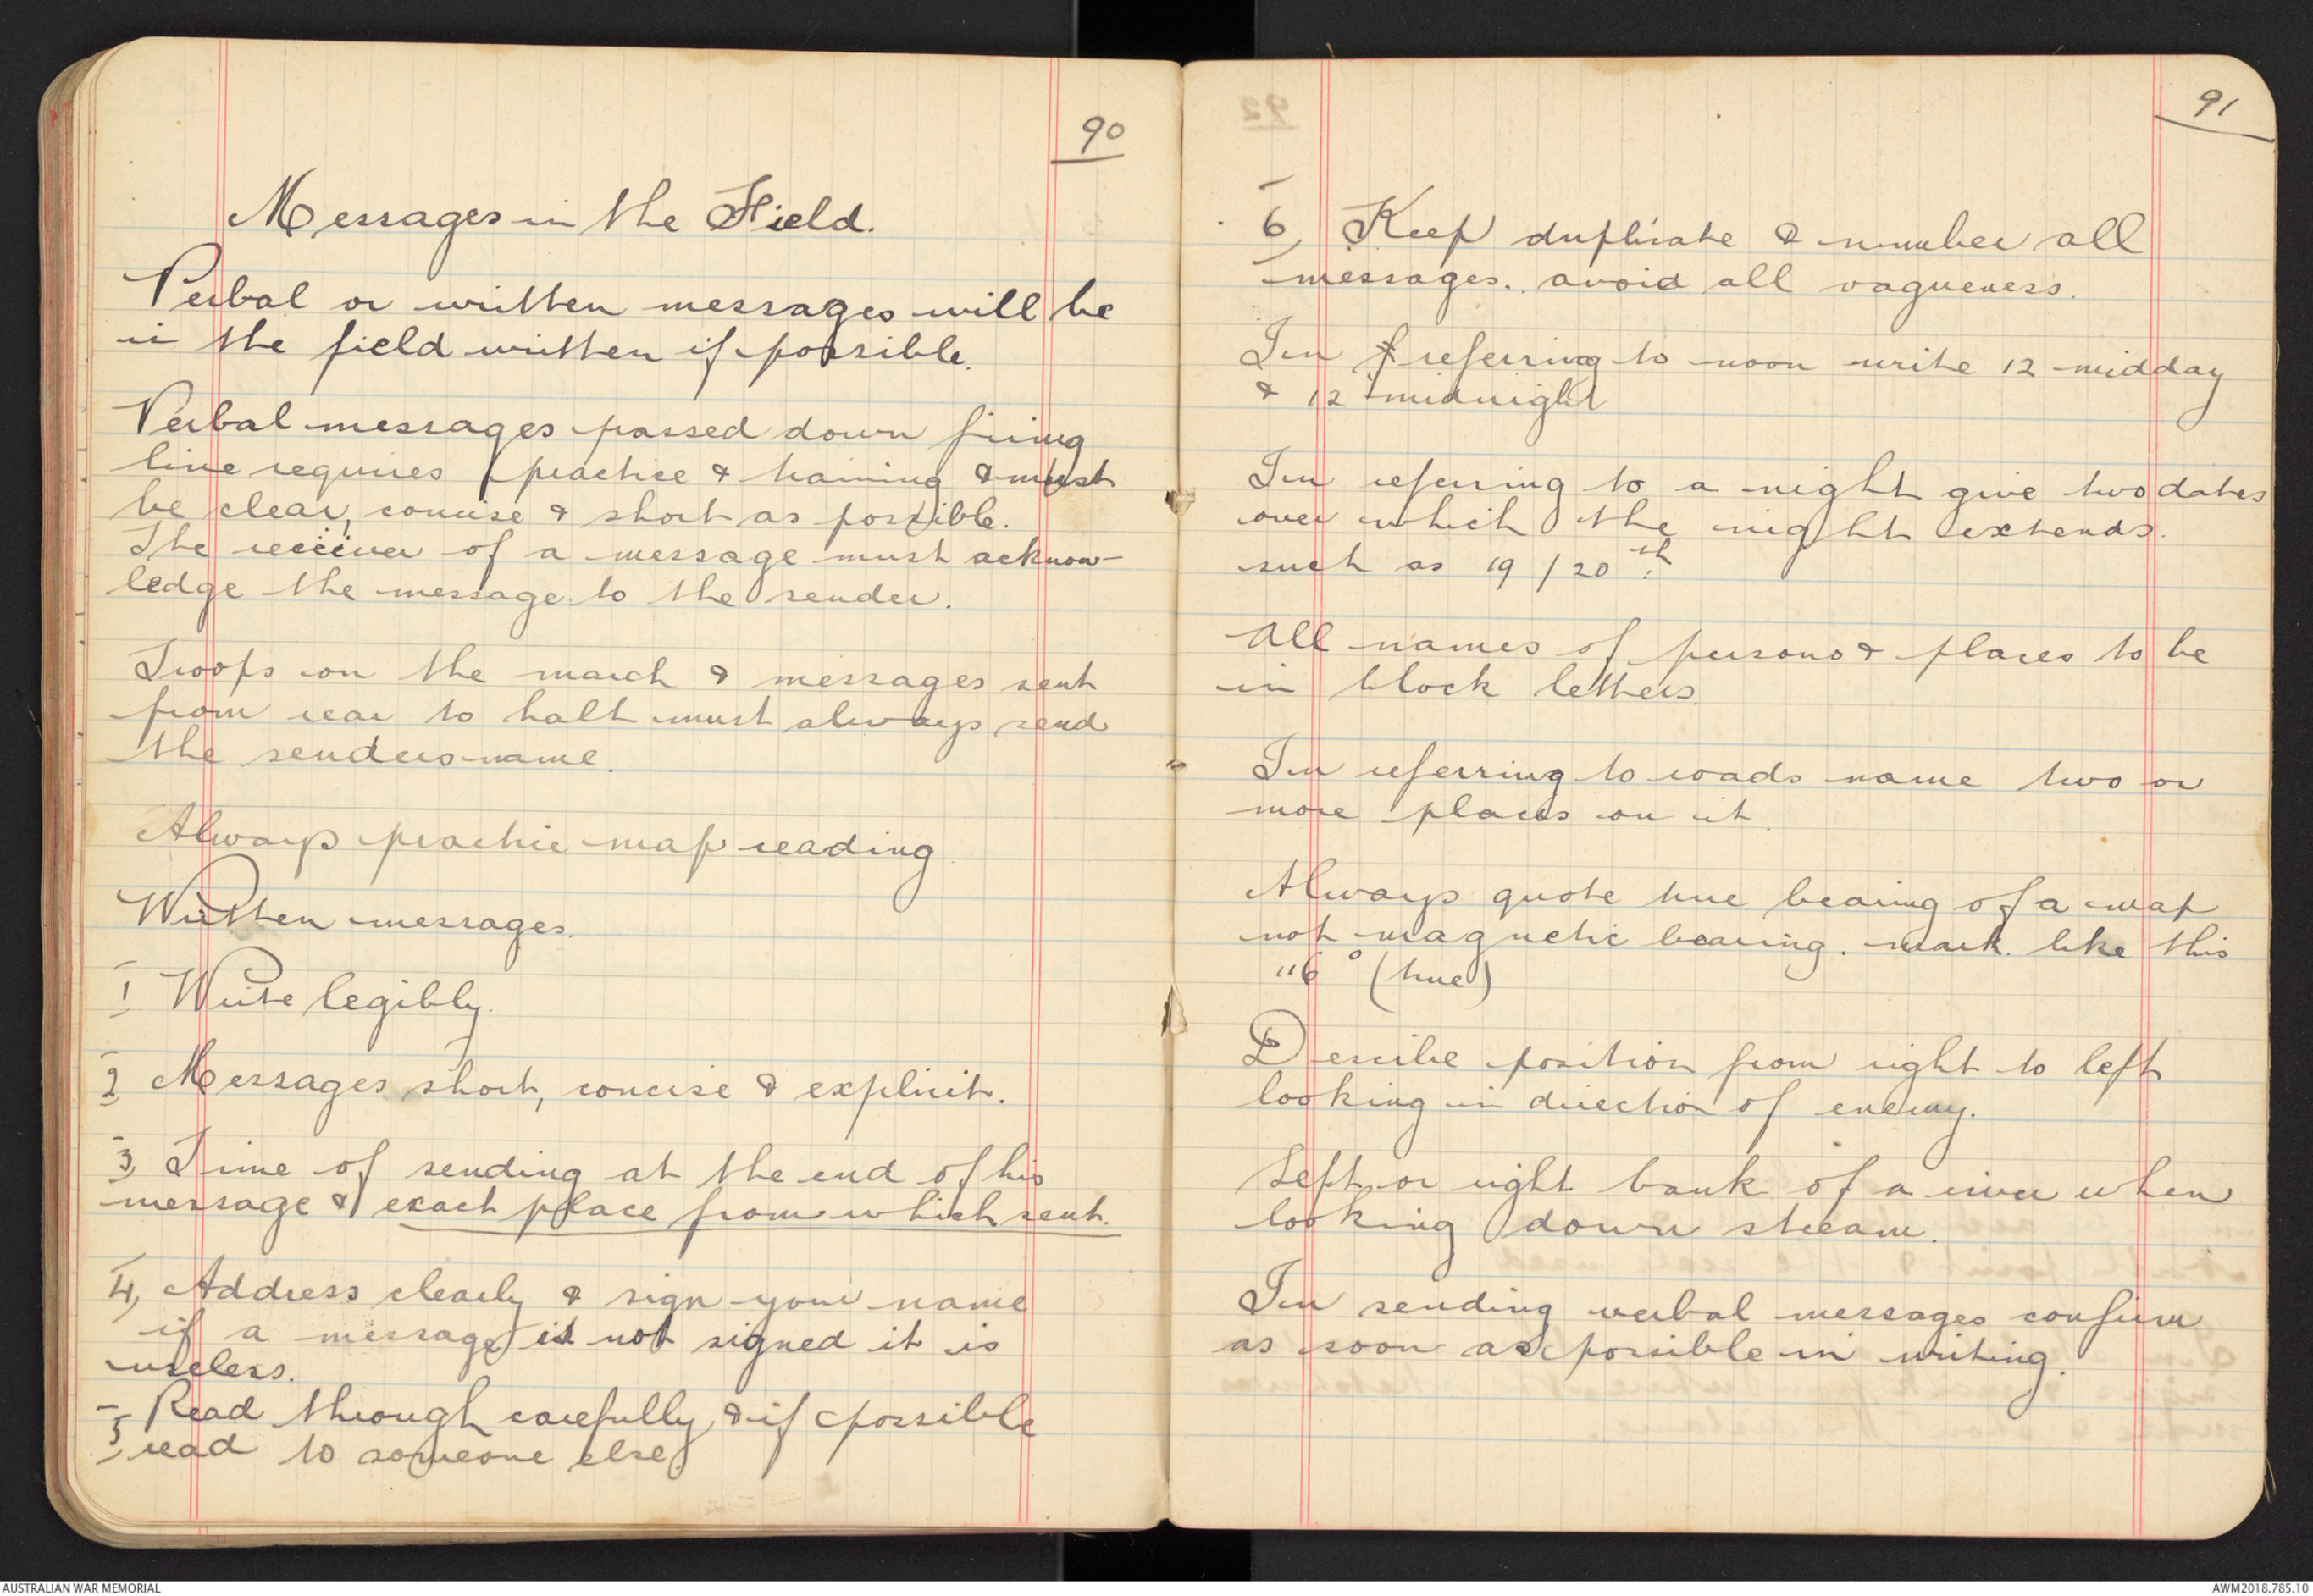 90
Messages in the Field.
Verbal or written messages will be
in the field written if possible.
Verbal messages passed down firing
line requires practice & training & must
be clear, concise & short as possible.
The receiver of a message must acknow-
ledge the message to the sender.
Troops on the march & messages sent
from rear to halt must always send
the senders name.
Always practice map reading
Written messages.
1 Write legibly.
2 Messages short, concise & explicit.
3, Time of sending at the end of his
message & exact place from which sent.
4, Address clearly & sign your name
if a message is not signed it is
useless.
5, Read through carefully & if possible
read to someone else
91
6, Keep duplicate & number all
messages. avoid all vagueness.
In referring to noon write 12 midday
& 12 midnight
In referring to a night give two dates
over which the night extends.
such as 19/20th
All names of persons & places to be
in block letters.
In referring to roads name two or
more places on it.
Always quote true bearing of a map
not magnetic bearing. mark like this
116° (true)
Describe position from right to left
looking in direction of enemy.
Left or right bank of a river when
looking down stream.
In sending verbal messages confirm
as soon as possible in writing.
AUSTRALIAN WAR MEMORIAL
AWM2018.785.10